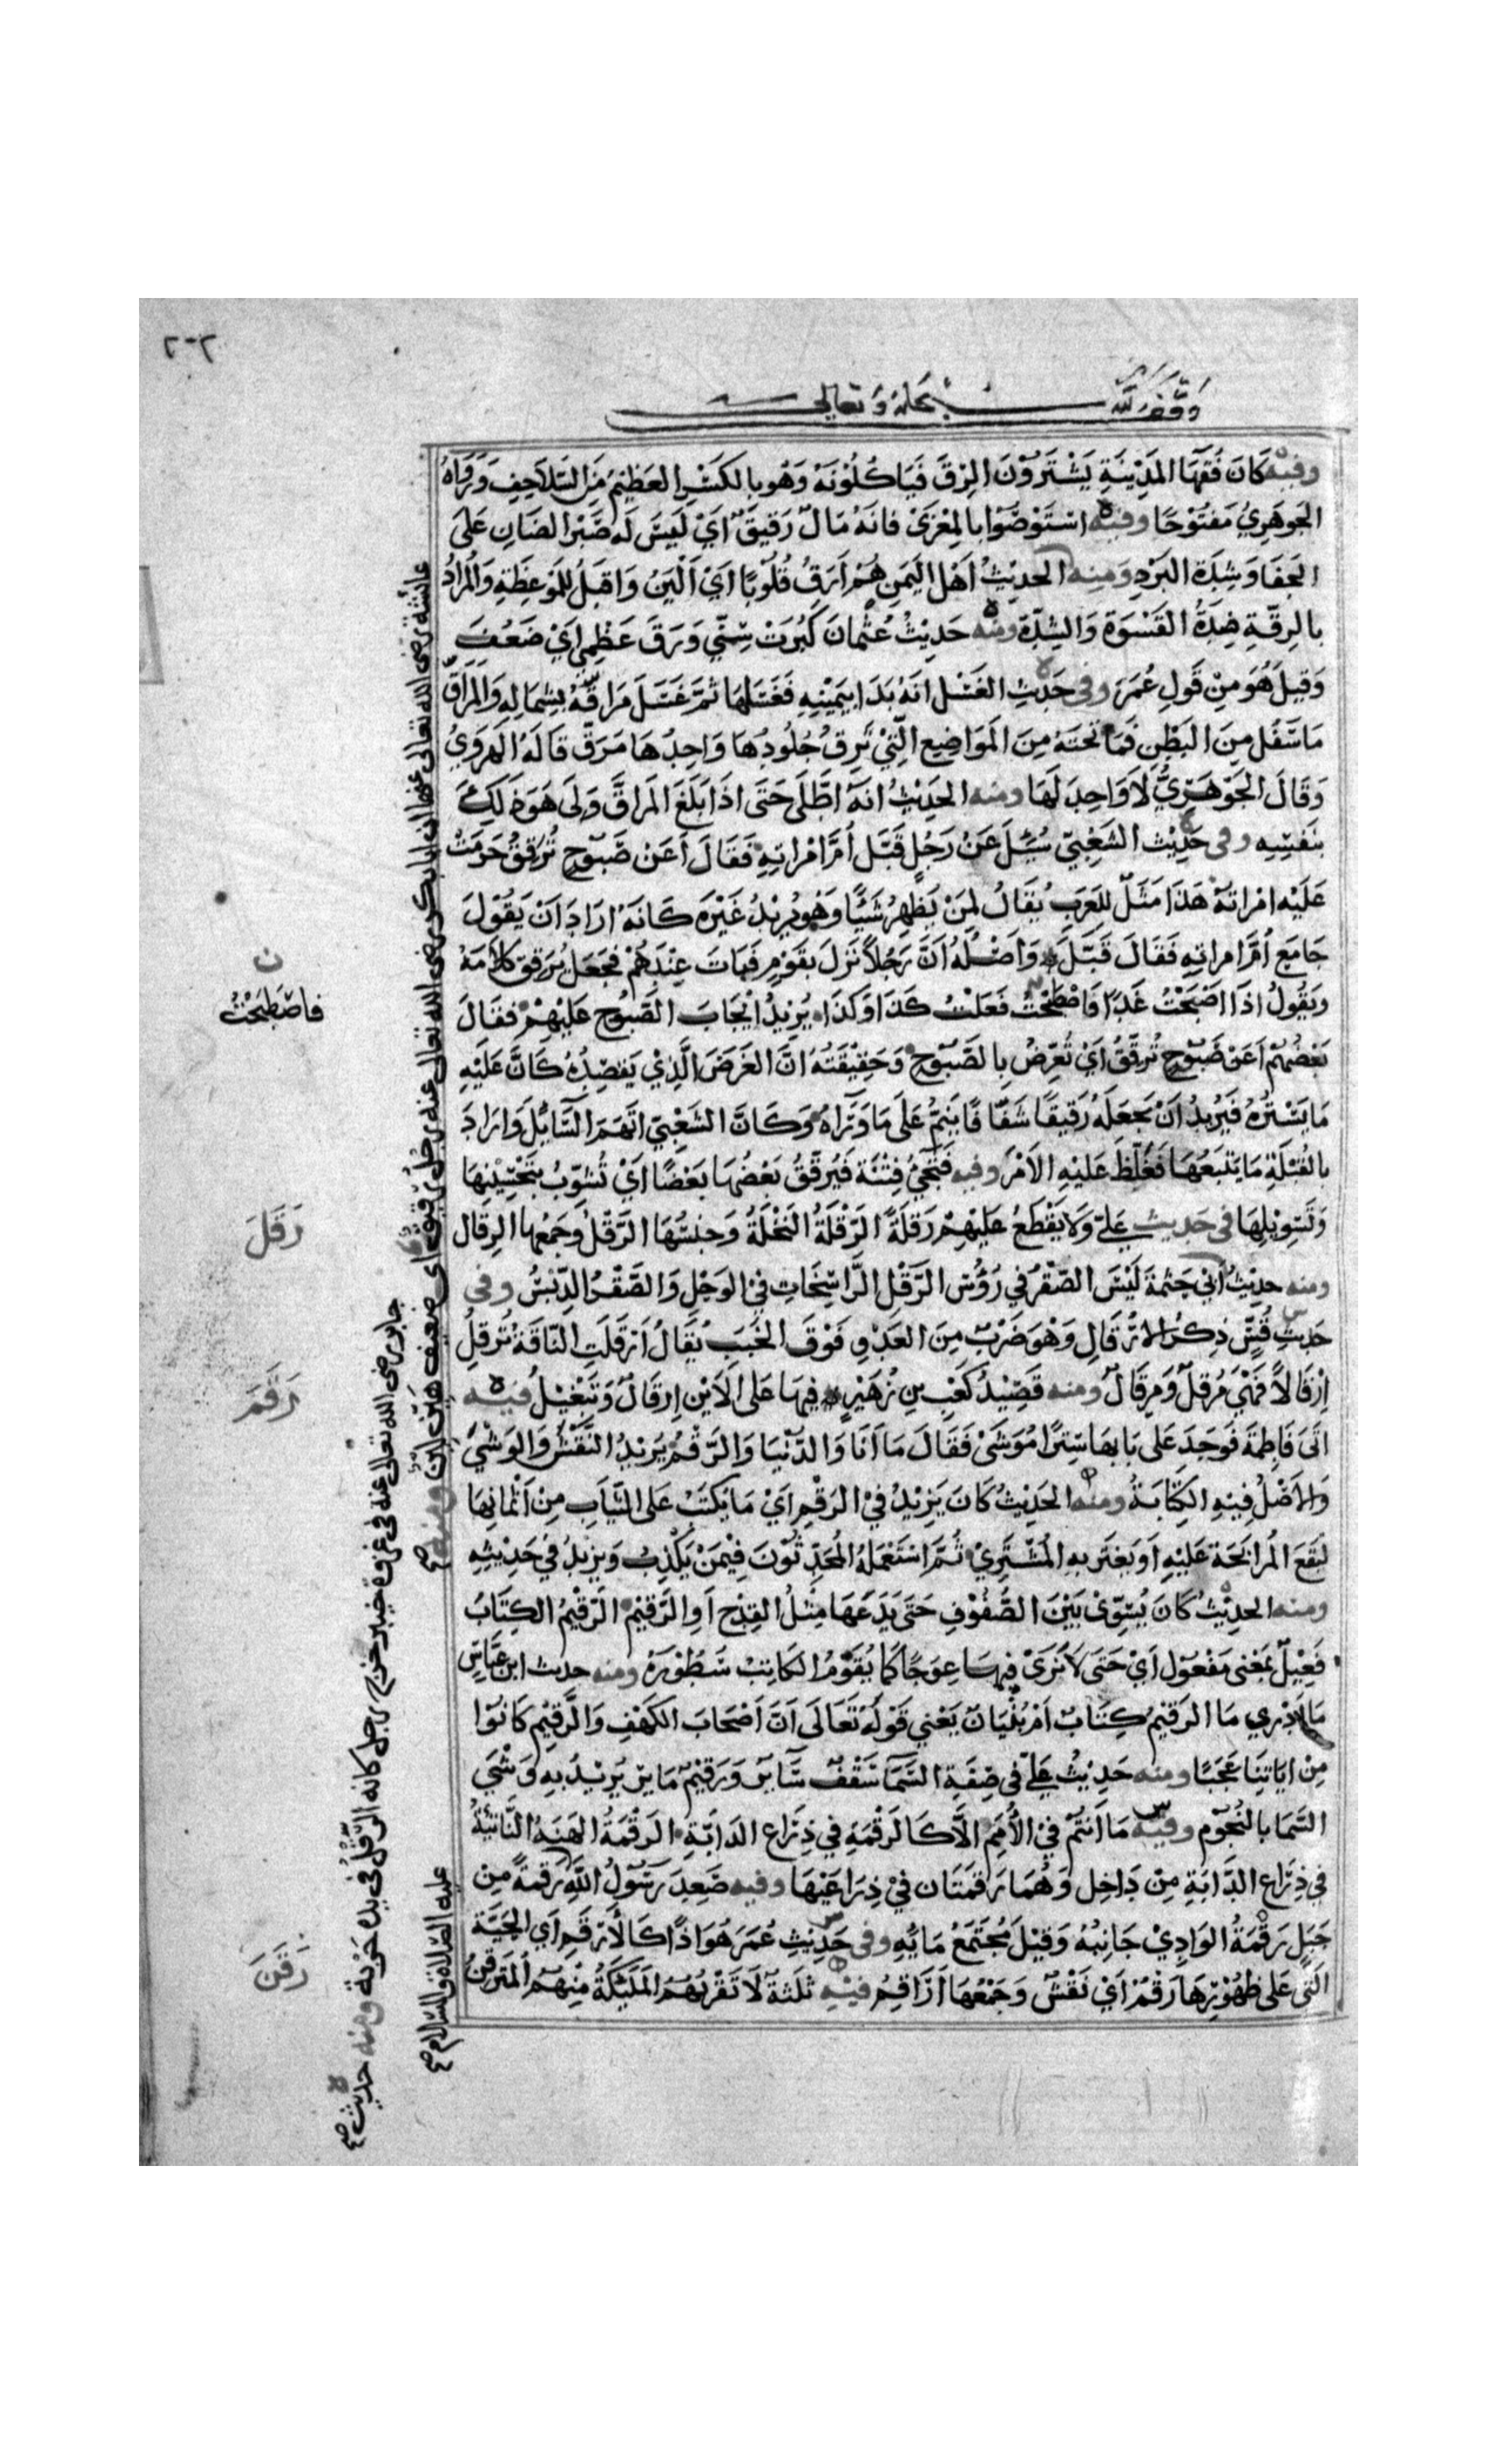 ٢٠٢
وقف لله سبحانه وتعالى
وفيه كَانَ فُقَهَا المَدِيْنَةِ يَشْتَرَوْنَ الرِقَّ فَيَاكُلُوْنَهُ وَهُو بِالكَسْرِ العَظِيْمُ مِنَ السَّلَاحِفِ وَرَوَاهُ
الجَوهَرِيُّ مَفْتُوْحًا وفيه اسْتَوْصُوْا بالمِعْزَىْ فانَهُ مَالٌ رَقيقٌ اَيْ لَيسَ لَه صَبْرَ الضَانِ عَلىَ
الجَفَا وَشِدَةِ البَرْدِ وَمنِه الحديْثُ اَهْلُ اليَمَنِ هُمْ اَرَقُ قُلُوْبًا اَيْ اَلْيَنُ وَاقبَلُ لِلْمَوْعِظَةِ وَالمُرادُ
بالرِقّةِ ضِدَةُ القَسْوَةِ وَالشِدّةِ ومنْه حَدِيْثُ عُثْمانَ كَبُرَتْ سِنّي وَرَقَ عَظْمِي اَيْ ضَعُفَ
وَقيلَ هُوَ مِنْ قَولِ عُمَرَ وفي حَدِيْثِ الغَسْلِ انَهُ بَدَا بيَمِيْنِهِ فَغَسَلهَا ثمَّ غَسَلَ مَرَاقّهُ بِشِمَالِهِ وَالمرَاقّ
مَاسَفُلَ مِنَ البَطْنِ فَمَا تَحْتَهُ مِنَ المَوَاضِيعِ الّتِيْ تَرِقُ جُلُودُهَا وَاحِدُهَا مَرَقٌّ قَالَهُ الهَرَويُ
وَقَالَ الجَوْهَرِيُّ لاَوَاحِدَ لَهَا ومنه الحَدِيْثُ انَهُ اطَّلَى حَتَى اذَا بَلَغَ المَرَاقَّ وَلىَ هَوَ ذَلِكَ
بنَفسِهِ وفي حَدِيْثِ الشَعْبِيّ سُئِلَ عَنْ رَجُلٍ قَبَّلَ اُمَّ امْرَاتِهِ فَقَالَ اَعَنْ صَبُوْحٍ تُرَقِقُ حَرَمَتْ
عَلَيْه امْرَاتُهُ هَذَا مَثَلٌ لِلعَرَبِ يُقَالُ لِمَنْ يُظهِرُ شَيْئًا وَهُو يُرِيْدُ غَيْرَه كَانَهُ ارَادَ اَنْ يَقُوْلَ
جَامَعَ اُمَّ امرَاتِهِ فَقَالَ قَبَّلَ وَاَصْلُهُ اَنَّ رَجُلاً نَزَلَ بقَوْمٍ فَبَاتَ عِنْدَهُمْ فجَعَلَ يُرَققُ كلاَمَهُ
ويَقُولُ اذَا اصْبَحْتُ غَدًا فَاصْطَبَحْتُ فَعَلْتُ كَذَا اوْكَذَا يُرِيْدُ ايْجَابَ الصَّبُوْحِ عَلَيْهِمْ فقَالَ
بَعْضُهُمْ اَعَنْ صَبُوْحٍ تُرقّقُ اَيْ تُعَرِّضُ بالصَّبُوْحِ وَحَقِيْقَتُهُ انَّ الغَرَضَ الَّذِيْ يَقصِدُهُ كَانَّ عَلَيْهِ
مَايَسْتُرُهُ فَيُرِيدُ اَنْ يَجعَلَهُ رَقِيْقًا شَفّافًا يَنِمُّ عَلىَ مَاوَرَاهُ وَكَانَّ الشَعْبِيّ اتّهَمَ السَّائِلَ وَارَادَ
بالقُبْلَةِ مَايَتْبَعُهَا فَغَلّظَ عَليْهِ الاَمْرَ وفيه فَتَجِيْ فِتْنَة فَيُرَقّقُ بَعْضُهَا بَعْضًا اَيْ تُشَوِّبُ بتَحْسِيْنِهَا
وَتَسْوِيْلِهَا في حَديثِ عَليّ وَلاَ يَقْطَعُ عَلَيْهِمْ رَقْلَةً الرَّقْلَةُ النَخْلَةُ وَجِنسُهَا الرَّقْلُ وَجَمْعُها الرِقَالُ
ومنه حديْثُ اَبِي حَثْمةَ لَيْسَ الصَّقْرُ في رُؤُسِ الرَّقْلِ الرَّاسِخَاتِ فيْ الوَحْلِ وَالصَّقْرُ الدِّبْسُ وفي
حَديْثِ قُسٍّ ذِكرُ الاِرْقَالِ وَهْوَ ضَرْبٌ مِنَ العَدْوِ فَوْقَ الخَبَبِ يُقَالُ اَرْقَلَتِ النّاقَةُ تُرْقِلُ
اِرْقَالاً فَهْيَ مُرْقِلٌ وَمِرقَالٌ ومنه قَصِيْدُ كَعْبِ بنِ زُهَيْرٍ فيهَا عَلىَ الاَيْنِ اِرْقَالٌ وَتَبْغِيْلُ فيه
اتَى فَاطِمَةَ فَوجَدَ عَلىَ بَابهَا سِتْرًا مُوَشّىً فَقَالَ مَا اَنَا وَالدُّنْيَا وَالرَّقْمُ يُرِيْدُ النَّقْشَ وَالوَشْيَ
وَالاَصْلُ فِيْهِ الكِتَابَةُ ومنْه الحَدِيْثُ كَانَ يَزِيْدُ فيْ الرَقْمِ اَيْ مَايُكتَبُ عَلىَ الثِّيَابِ مِنْ اَثْمَانِهَا
لتَقَعَ المُرابَحَة عَليْهِ اَويَغتَر بهِ المُشْتَرِيْ ثُمَّ اسْتَعْمَلهُ المُحَدِّثُوْنَ فِيْمَنْ يَكْذِبُ وَيزِيْدُ في حَدِيْثِهِ
ومنه الحديْثُ كَانَ يُسَوِّىْ بَيْنَ الصُّفُوْفِ حَتَى يَدَعَهَا مِثْلَ القِدْحِ اَوِ الرَّقِيْمِ الرَّقيْمُ الكِتَابُ
فَعِيْلٌ بمَعْنىَ مَفْعوْل اَيْ حَتىَ لاَتَرَىْ فيهَا عِوَجًا كَما يُقَوّمُ الكَاتِبُ سُطُوْرَهُ ومنه حديْث ابن عَبّاسٍ
مَا اَدْرِي مَا الرَقيْمُ كِتَابٌ اَمْ بُنْيَانٌ يَعْني قَوْلَهُ تَعَالَى اَنَّ اَصْحَابَ الكَهْفِ وَالرَّقِيْمِ كَانُوْا
مِنْ ايَاتِنَا عَجَبًا ومنه حَدِيْثُ عَليّ في صِفَةِ السَّمَا سَقْفٌ سَايِرٌ وَرَقِيْمٌ مَايِرٌ يُرِيْدُ بِهِ وَشْيَ
السَّمَا بالنُجُوْمِ وفيه مَا اَنْتُمْ فيْ الأُمَمِ الاَّكَالرَقْمَةِ في ذِرَاعِ الدَابّةِ الرَقْمَةُ الهَنَةُ النَّاتِئَةُ
في ذِرَاعِ الدَّابَةِ مِنْ دَاخِل وَهُمَا رَقمَتَان فيْ ذِرَاعَيْهَا وفيه صَعِدَ رَسُوْلُ اللهِ رَقمَةً مِنْ
جَبَلٍ رَقْمَةُ الوَادِيْ جَانِبُهُ وَقيْلَ مُجْتَمَعُ مَائِهِ وفي حَدِيْثِ عُمَرَ هُوَ اذًا كَالاَرْقَمِ اَي الحَيّةِ
الَتيْ عَلى ظَهْرِهَا رَقْمٌ اَيْ نَقْشٌ وَجَمْعُهَا اَرَاقِمُ فيْهِ ثَلثَةٌ لاَ تَقْرَبُهُمْ المَلئِكَةُ مِنْهُمْ المتَرَقِّنُ
ن
فاصْطَبَحْتُ
رَقَلَ
رَقَمَ
رَقَنَ
عائشة رضى الله تعالى عنها ان ابا بكر رضى الله تعالى عنه رجل رقيق اى ضعيف هين لين ومنه صح
جابر رضى الله تعالى عنه فى غزوة خيبر خرج رجل كانه الرَّقْلُ فى يده حَرْبة ومنه حديث صح
عليه الصلاة والسلام صح